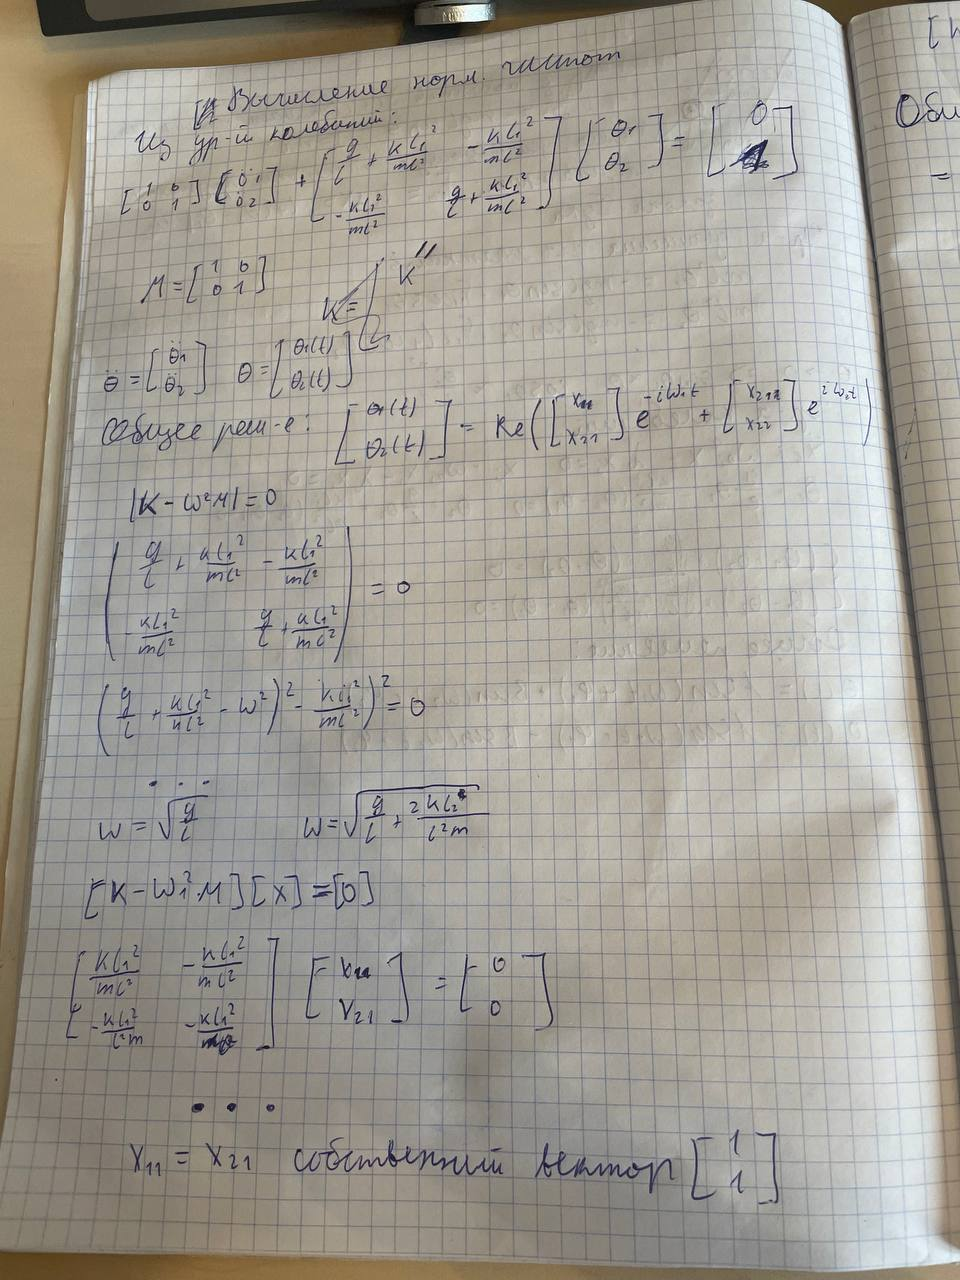 Вычисление норм. частот
Из ур-й колебаний:
[1 0; 0 1] [θ̈₁; θ̈₂] + [g/l + kl₁²/ml², -kl₁²/ml²; -kl₁²/ml², g/l + kl₁²/ml²] [θ₁; θ₂] = [0;
M = [1 0; 0 1]
K = "K"
θ̈ = [θ̈₁; θ̈₂] θ = [θ₁(t); θ₂(t)]
Общее реш-е: [θ₁(t); θ₂(t)] = Re([x₁₁; x₂₁] e^(-iω₁t) + [; x₂₂] e^(iω₂t))
|K - ω²M| = 0
(g/l + kl₁²/ml², -kl₁²/ml²; -kl₁²/ml², g/l + kl₁²/ml²) = 0
(g/l + kl₁²/ml² - ω²)² - kl₁²/ml²)² = 0
...
ω = √(g/l) ω = √(g/l + 2kl₁²/l²m)
[K - ω₁²M][X] = [0]
[kl₁²/ml², -kl₁²/ml²; -kl₁²/l²m, -kl₁²/] [x₁₁; x₂₁] = [0; 0]
...
x₁₁ = x₂₁ собственный вектор [1; 1]
[
Общ
=